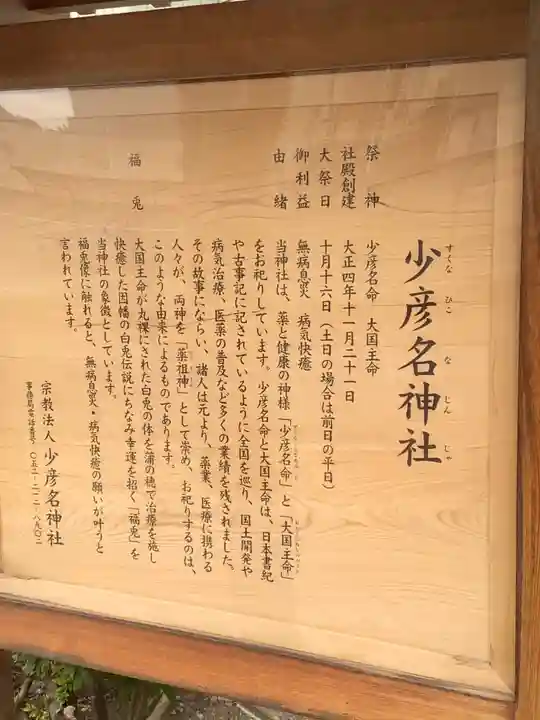 少彦名神社
すくな ひこ な じん じゃ
祭神 少彦名命 大国主命
社殿創建 大正四年十一月二十一日
大祭日 十月十六日（土日の場合は前日の平日）
御利益 無病息災 病気快癒
由緒 当神社は、薬と健康の神様「少彦名命」と「大国主命」
をお祀りしています。少彦名命と大国主命は、日本書紀
や古事記に記されているように全国を巡り、国土開発や
病気治療、医薬の普及など多くの業績を残されました。
その故事にならい、諸人は元より、薬業、医療に携わる
人々が、両神を「薬祖神」として崇め、お祀りするのは、
このような由来によるものであります。
福兎 大国主命が丸裸にされた白兎の体を蒲の穂で治療を施し
快癒した因幡の白兎伝説にちなみ幸運を招く「福兎」を
当神社の象徴としています。
福兎像に触れると、無病息災・病気快癒の願いが叶うと
言われています。
宗教法人 少彦名神社
事務局電話番号 〇五二-二一二-八九〇二